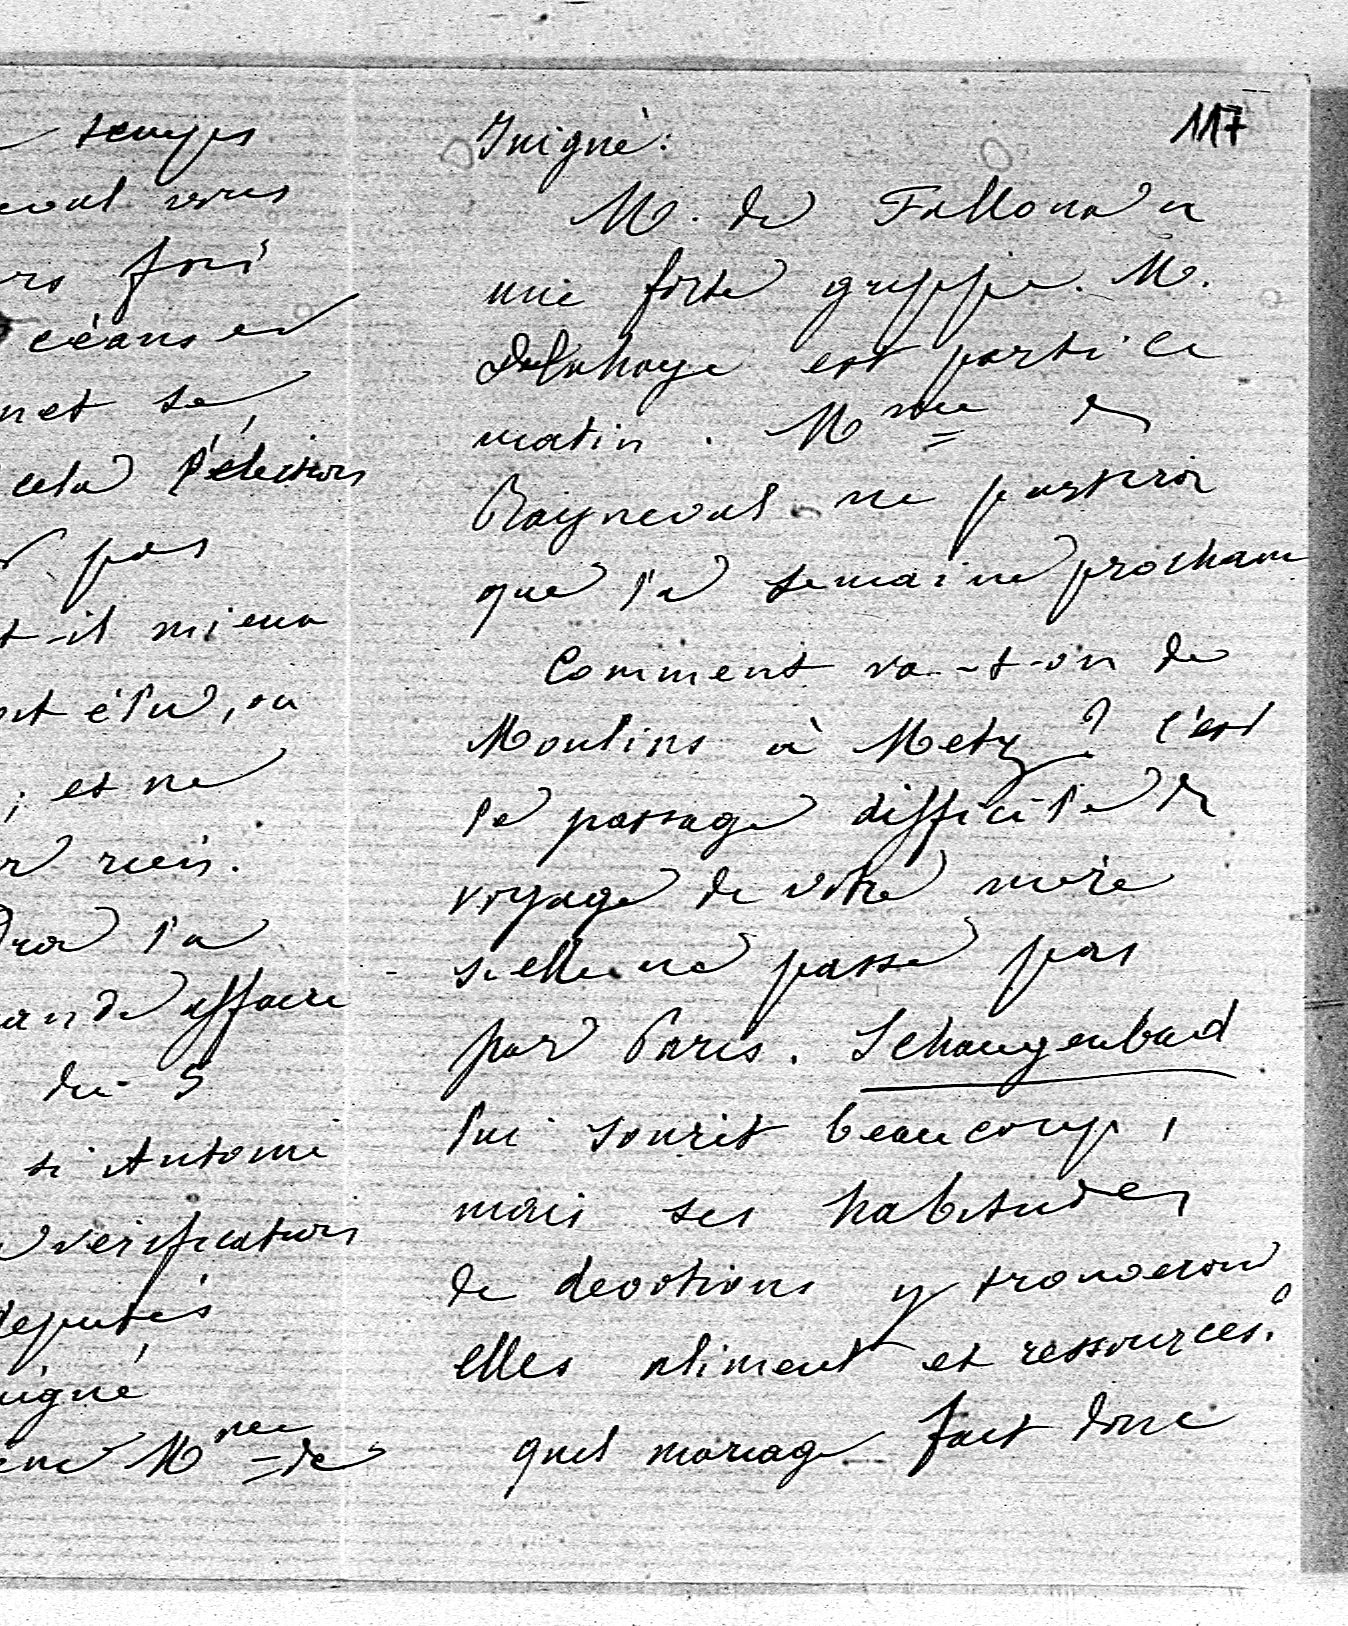 temps
vous
fois
céans et
net se
cela l'élection
pas
t-il mieux
élu, ou
; et ne
rien.
la
affaire
du 5
si Antoine
vérification
députés
Mme de
117
Juigné.
M. de Falloux a
une forte grippe. M.
Delahaye est parti ce
matin. Mme de
Rayneval ne partira
que la semaine prochaine
Comment va-t-on de
Moulins à Metz ? C'est
le passage difficile du
voyage de votre mère
si elle ne passe pas
par Paris. Schangenbad
lui sourit beaucoup,
mais ses habitudes
de dévotions y trouveront
elles aliment et ressources ?
quel mariage fait donc